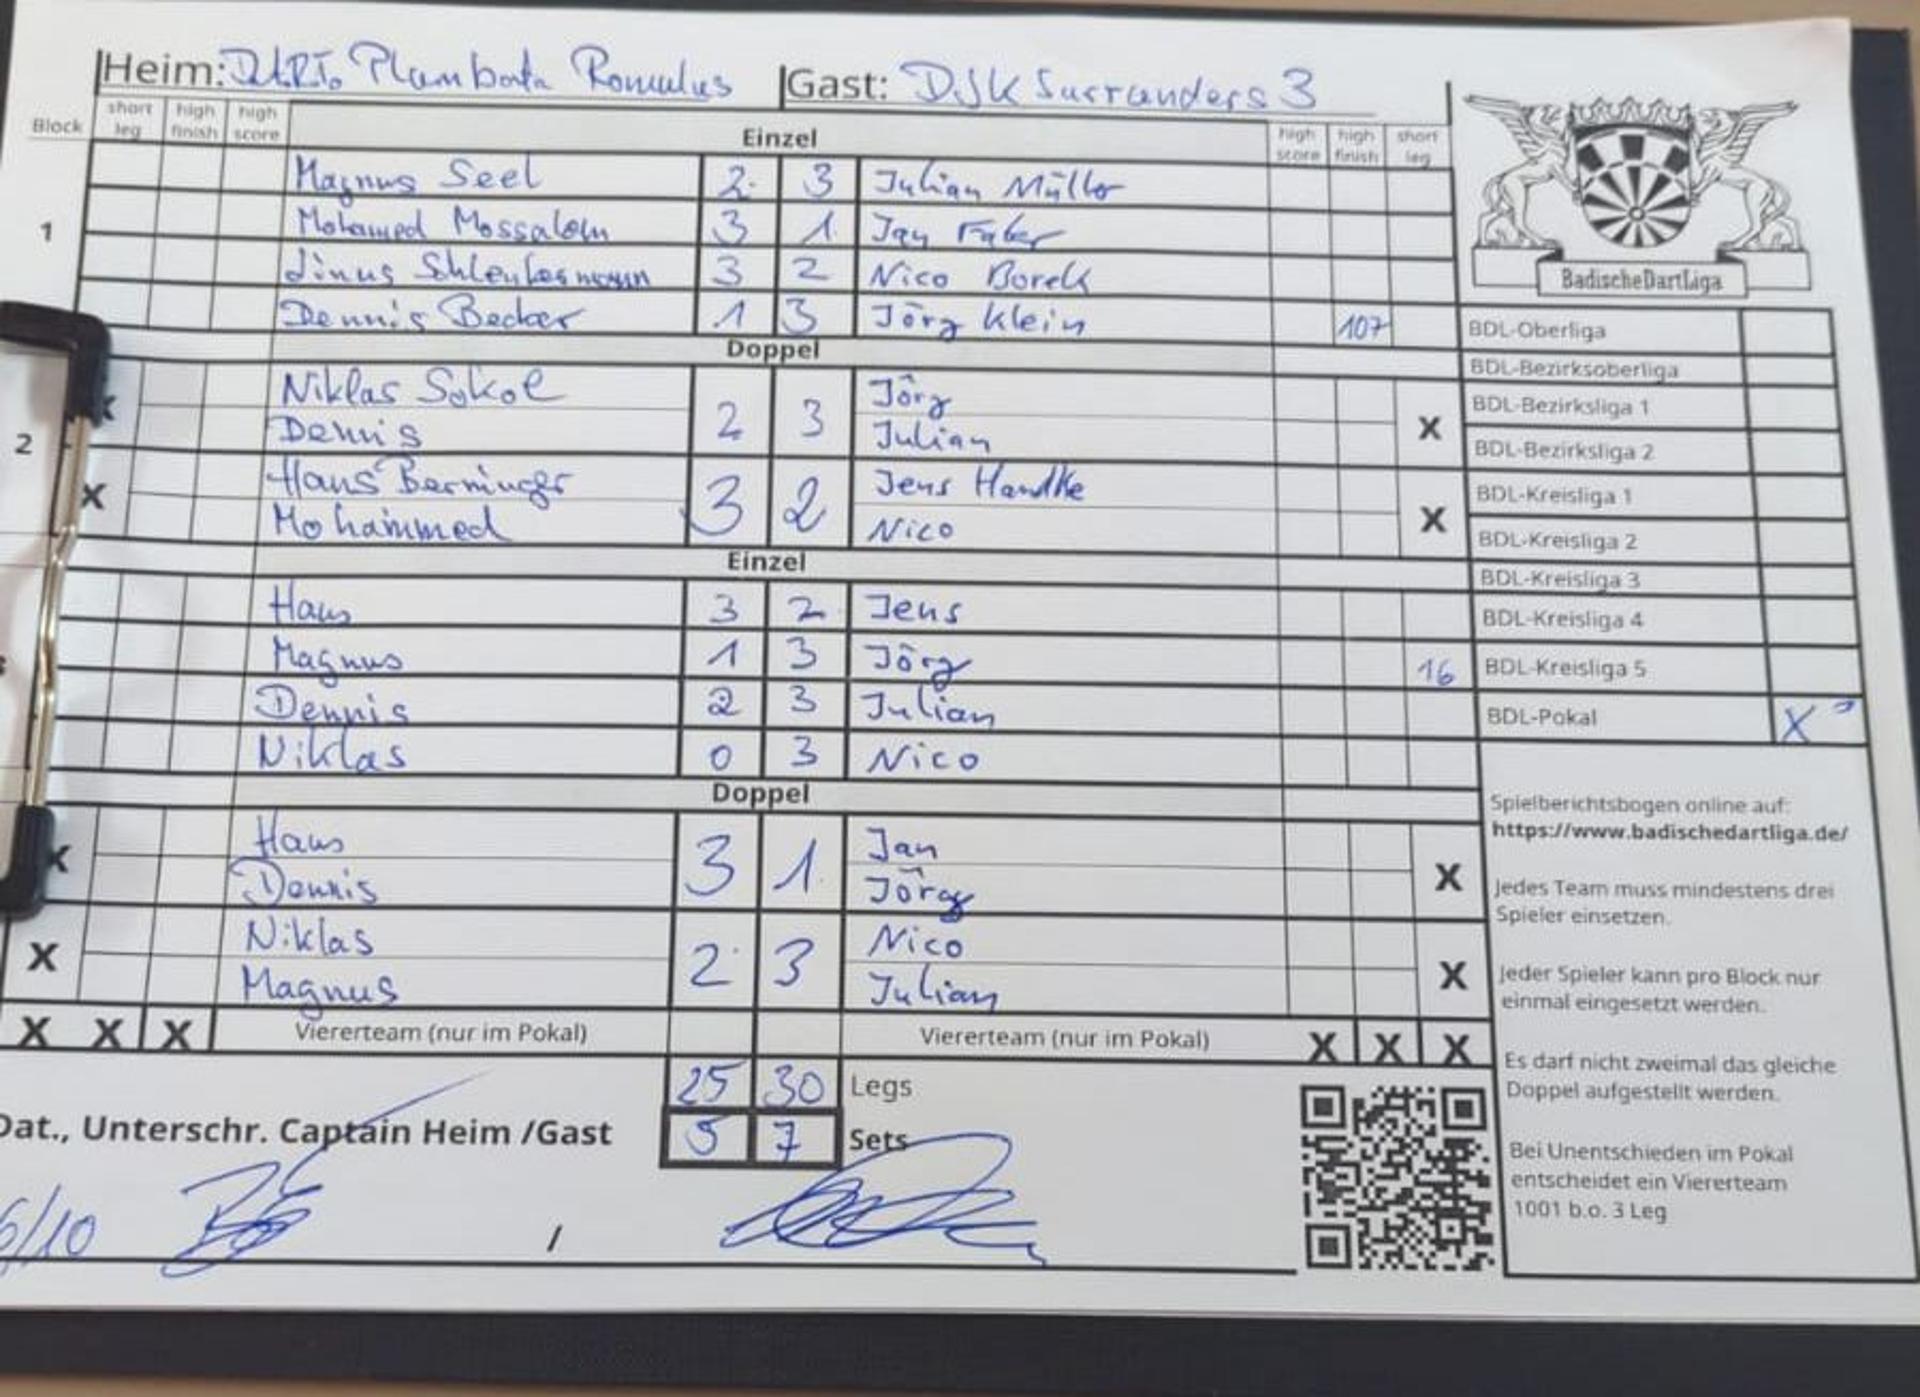 Heim: Plambata Romulus Gast: DJK Surranders 3
Block short leg high finish high score Einzel high score high finish short leg
Magnus Seel 2 3 Julian Müller
1 Mohamed Mossalem 3 1 Jan Faber
Linus 3 2 Nico Borek
Dennis Becker 1 3 Jörg Klein 107
Doppel
Niklas Sokol 2 3 Jörg X
Dennis Julian
2 X Hans Berninger 3 2 Jens Handke X
Mohammed Nico
Einzel
Hans 3 2 Jens
Magnus 1 3 Jörg 16
Dennis 2 3 Julian
Niklas 0 3 Nico
Doppel
X Hans 3 1 Jan X
Dennis Jörg
X Niklas 2 3 Nico X
Magnus Julian
X X X Viererteam (nur im Pokal) Viererteam (nur im Pokal) X X X
25 30 Legs
Dat., Unterschr. Captain Heim /Gast 5 7 Sets
6/10 /
BadischeDartLiga
BDL-Oberliga
BDL-Bezirksoberliga
BDL-Bezirksliga 1
BDL-Bezirksliga 2
BDL-Kreisliga 1
BDL-Kreisliga 2
BDL-Kreisliga 3
BDL-Kreisliga 4
BDL-Kreisliga 5
BDL-Pokal X
Spielberichtsbogen online auf:
https://www.badischedartliga.de/
Jedes Team muss mindestens drei
Spieler einsetzen.
Jeder Spieler kann pro Block nur
einmal eingesetzt werden.
Es darf nicht zweimal das gleiche
Doppel aufgestellt werden.
Bei Unentschieden im Pokal
entscheidet ein Viererteam
1001 b.o. 3 Leg